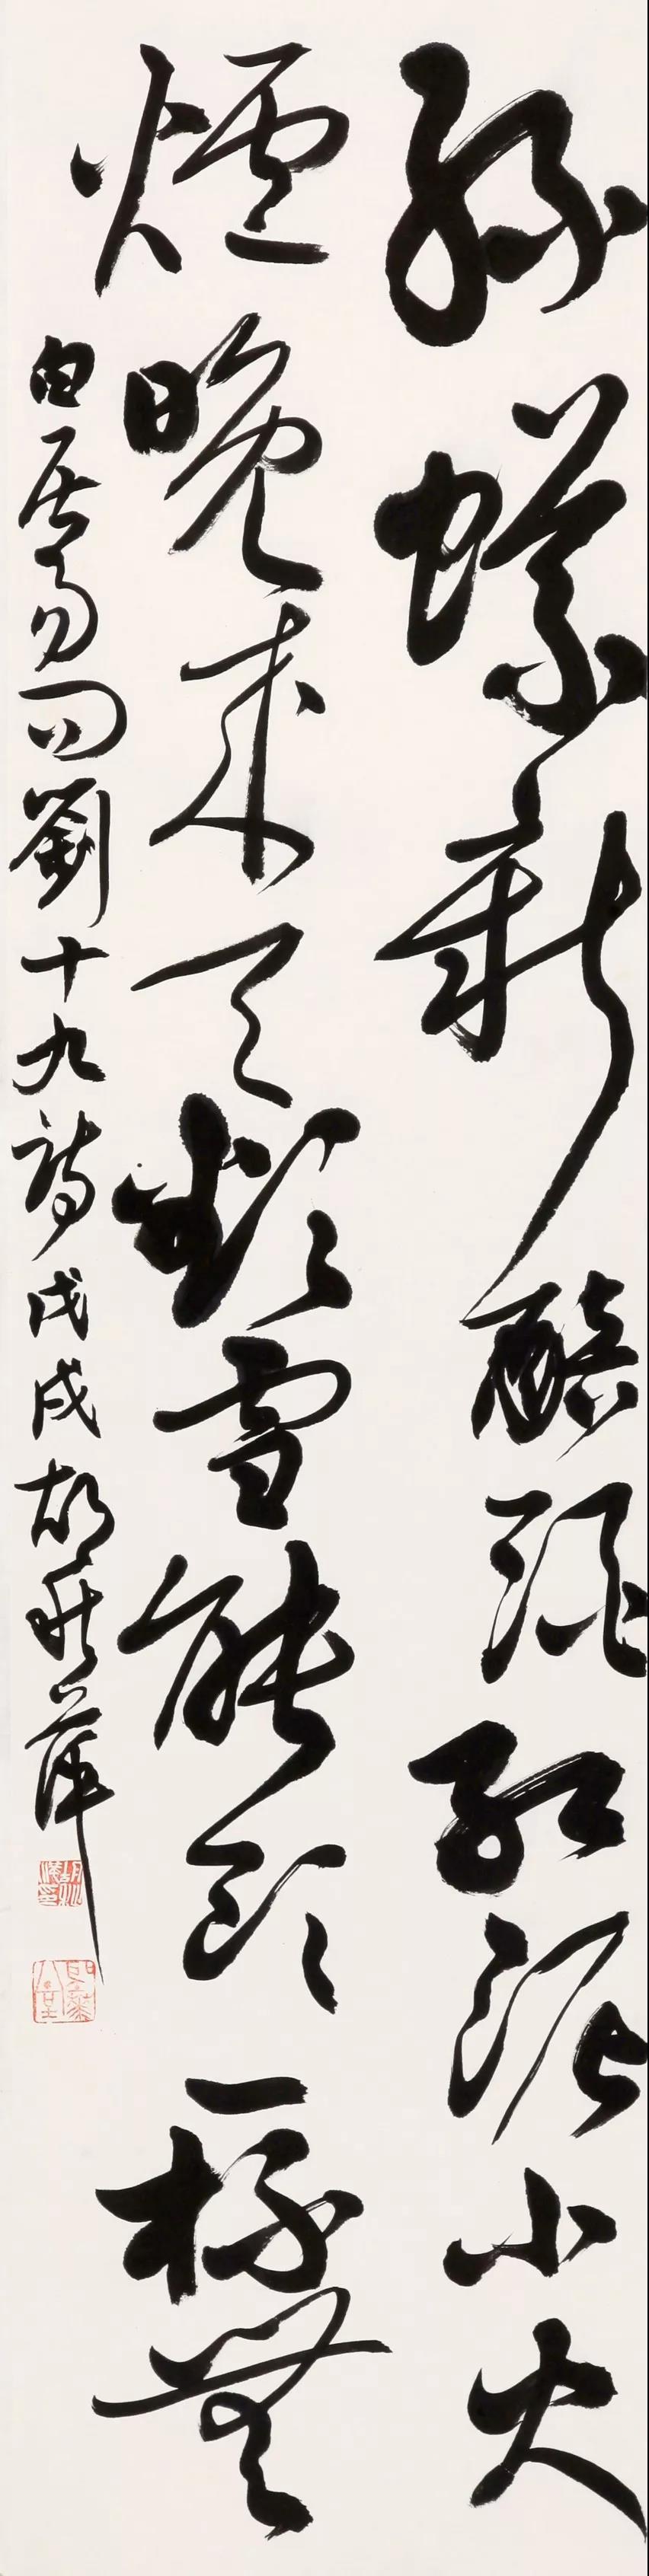 綠蟻新醅酒紅泥小火
爐晚來天欲雪能飲一杯無
白居易問劉十九詩戊戌胡秋萍
胡秋萍印